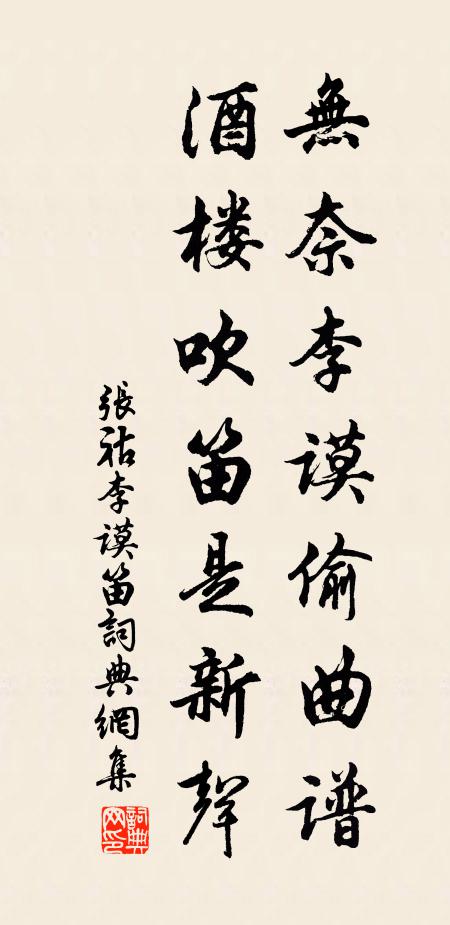 無奈李謨偷曲譜
酒楼吹笛是新聲
張祜李謨笛詞典網集
詞典网印